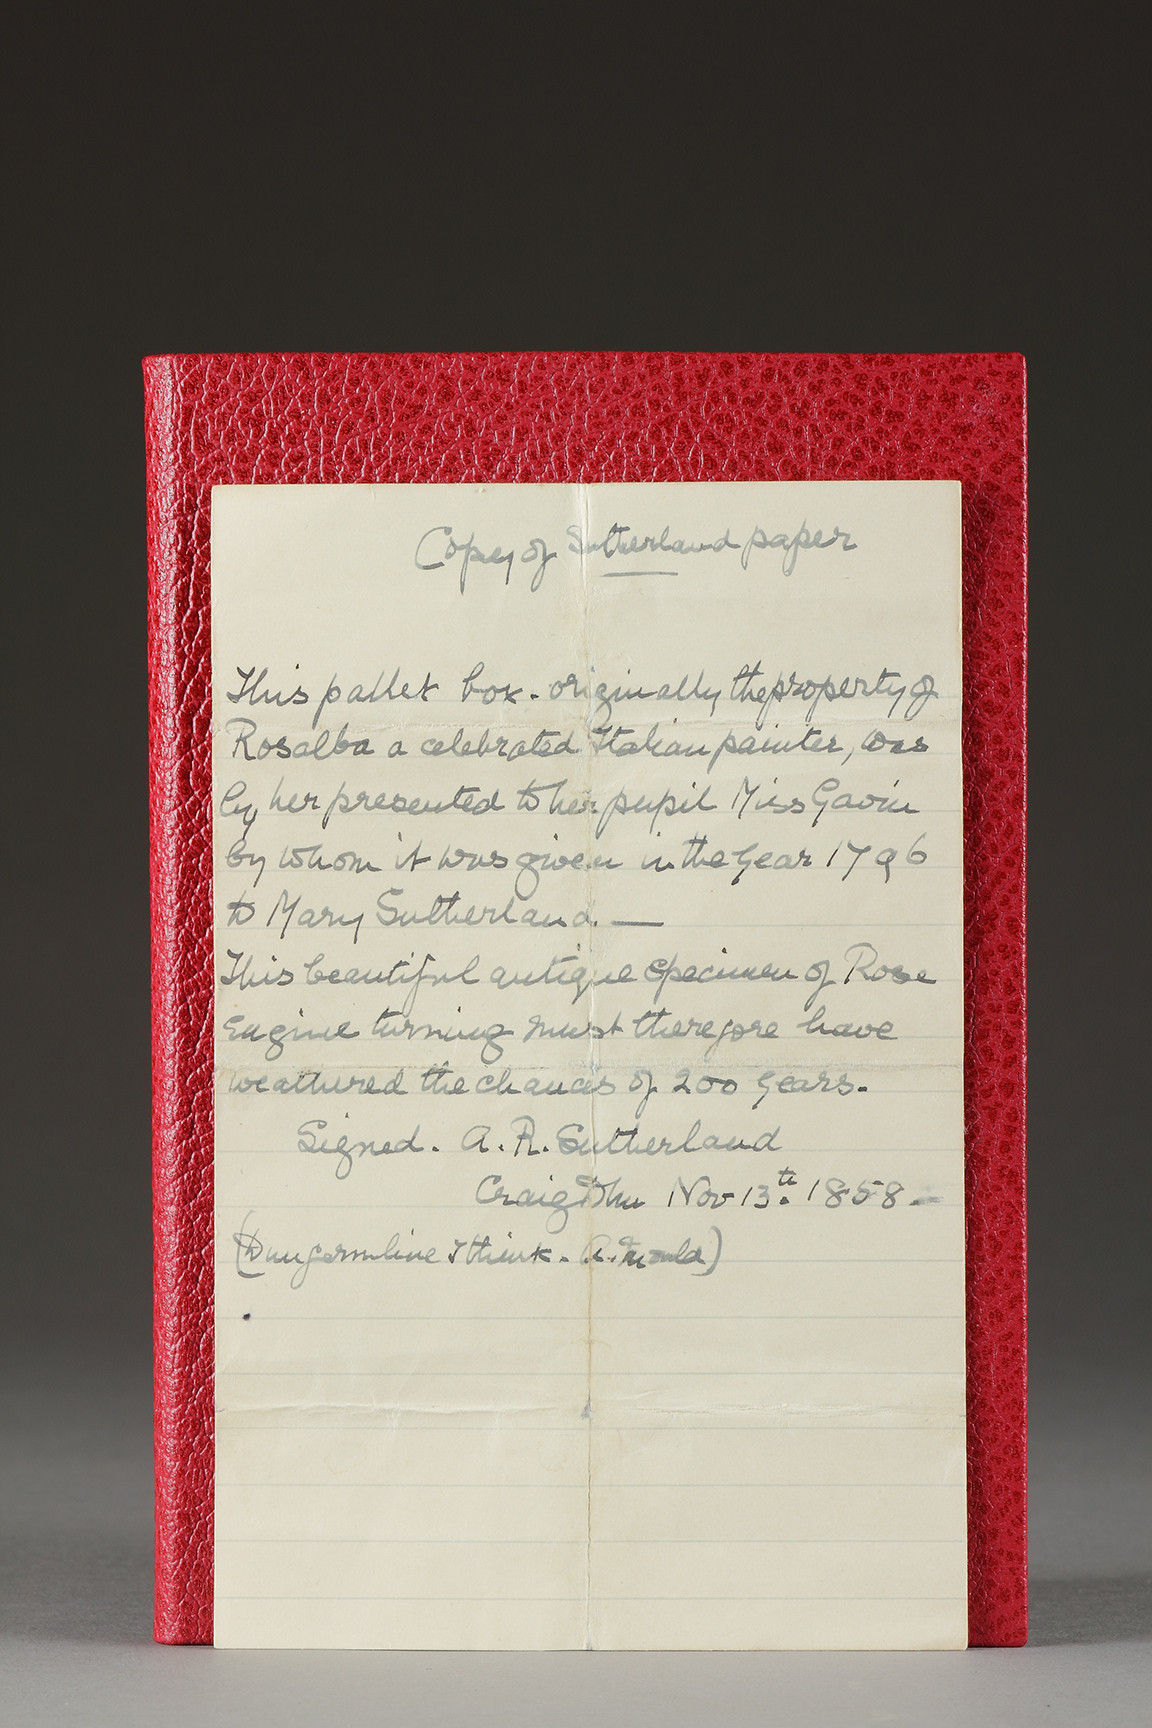 Copy of Sutherland paper
This pallet box. originally the property of
Rosalba a celebrated Italian painter, was
by her presented to her pupil Miss Gavin
by whom it was given in the year 1796
to Mary Sutherland. —
This beautiful antique specimen of Rose
Engine turning must therefore have
weathered the chances of 200 years.
Signed. A. R. Sutherland
Nov 13th. 1858 –
(Dunfermline I think.